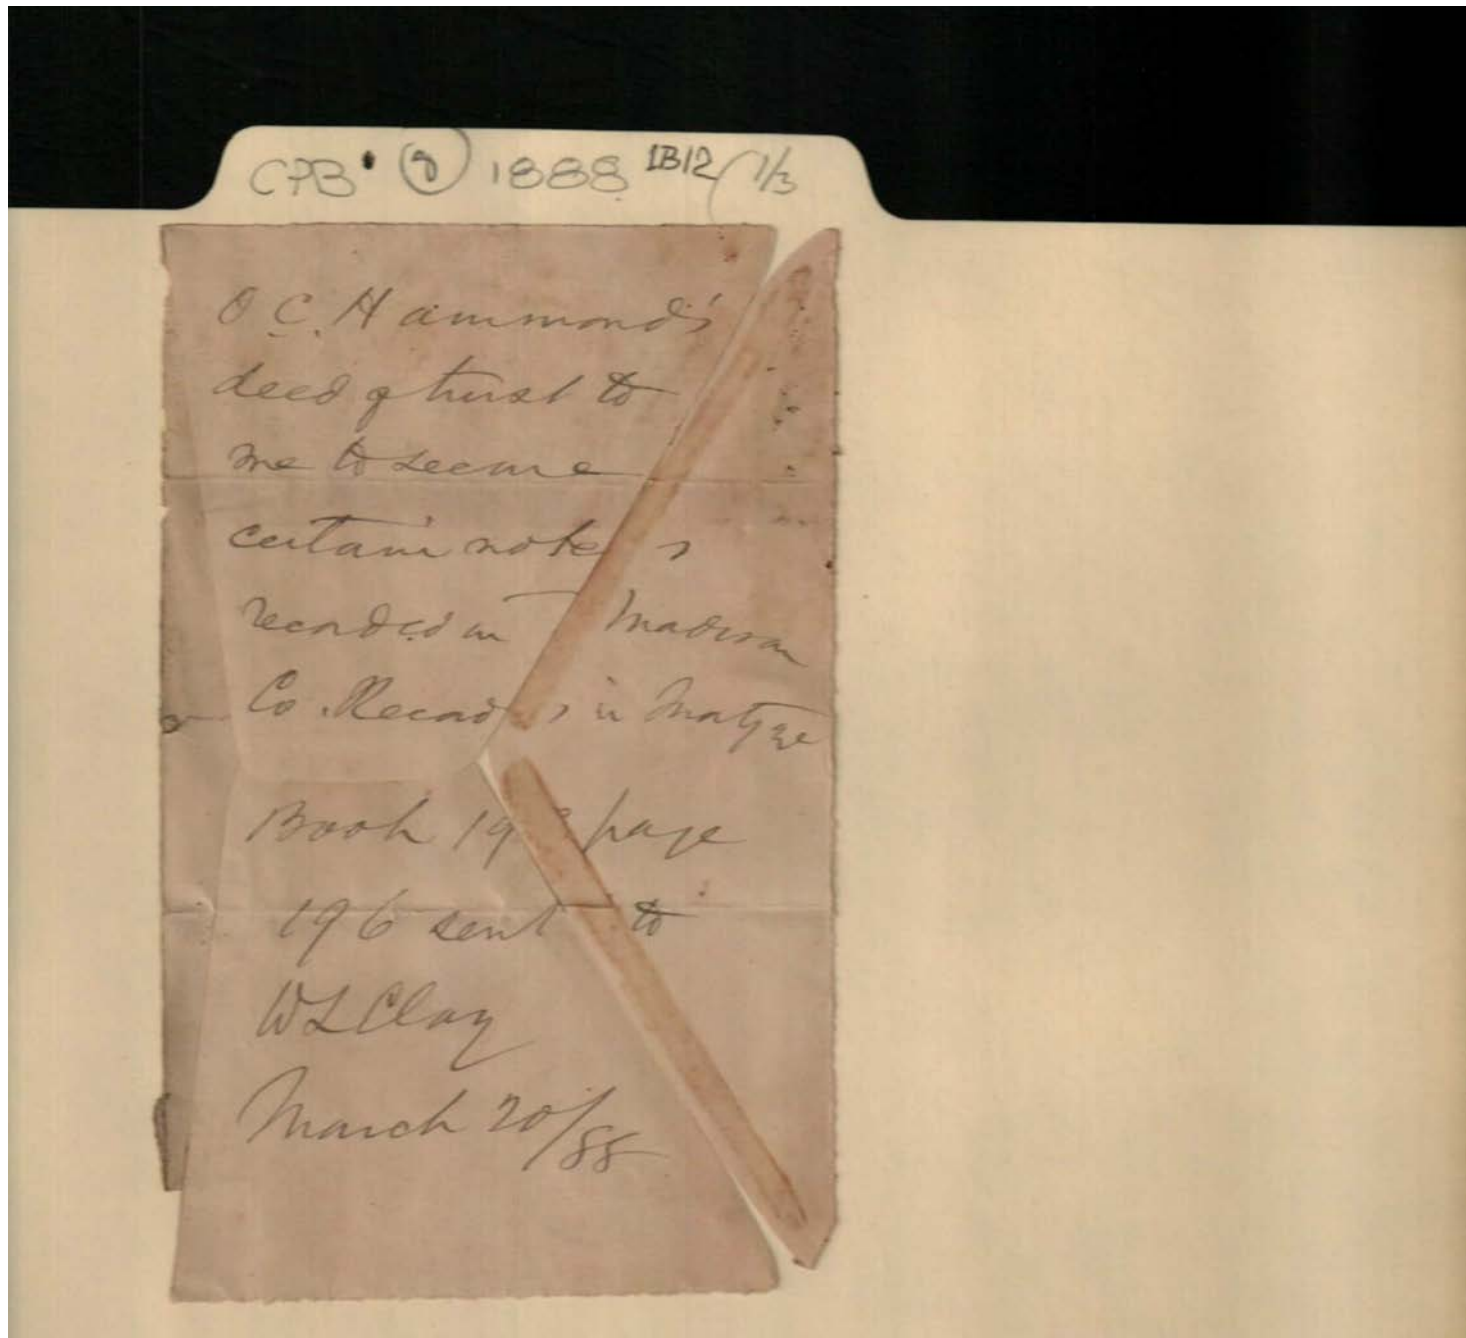 CPB • 8 1888 1B12 1/3
O C. Hammond's
deed of trust to
me to secure
certain notes
recorded in Madison
Co. Records in Mortgage
Book page
196 sent to
W L Clay
March 20/88